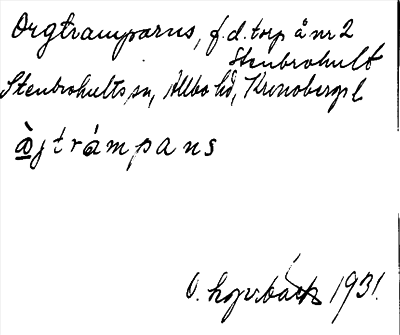 Orgtramparns, f.d. torp å nr 2
Stenbrohult
Stenbrohults sn, Allbo hd, Kronobergs l.
òjtrámpans
1931.